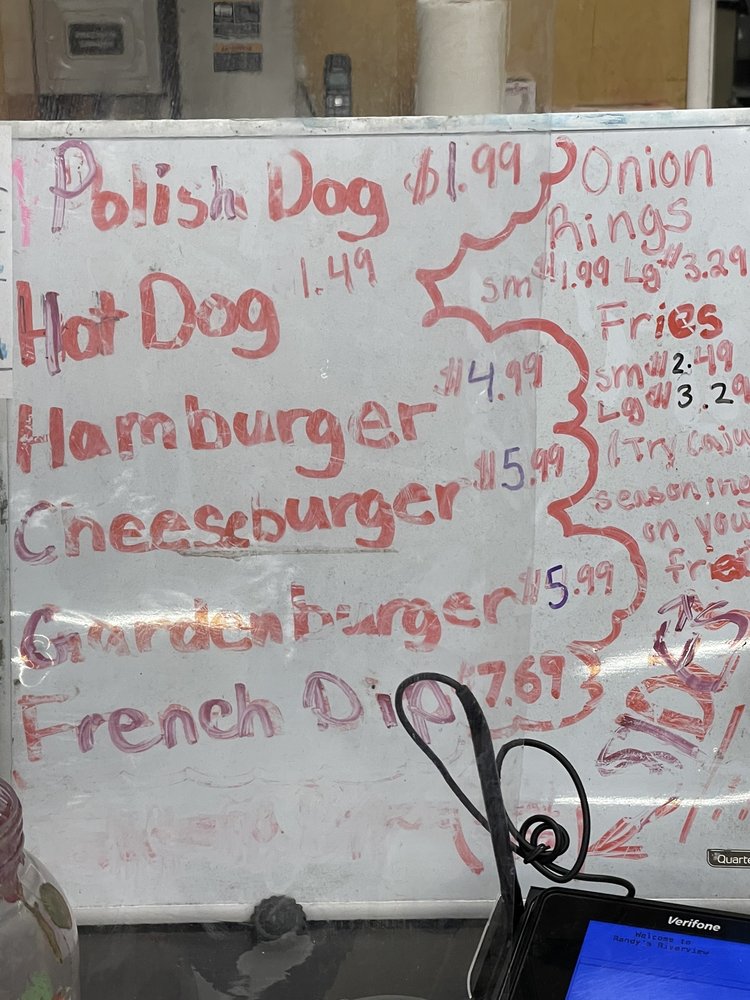 Polish Dog $1.99
Hot Dog 1.49
Hamburger $4.99
Cheeseburger $5.99
Gardenburger $5.99
French Dip $7.69
Onion
Rings
sm $1.99 Lg $3.29
Fries
sm $2.49
Lg $3.29
(Try Caju
seasoning
on you
SIDES
Quarte
Verifone
Welcome to
Randy's Riverview